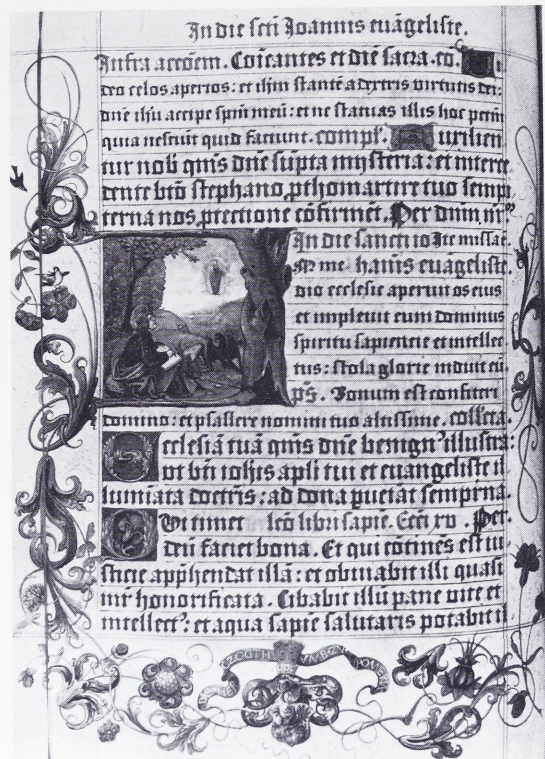 In die scti Joannis euãgeliste.
Infra accõem. Coicantes et diẽ sacra. co. Vi
deo celos apertos: et ihm stantẽ a dextris virtutis dei:
dnẽ ihu accipe spm meũ: et ne statuas illis hoc petm
quia nesciũt quid faciunt. compl'. Auxilien
tur nob qms dne sũpta mysteria: et interce
dente btõ stephano, pthomartire tuo sempi
terna nos, ptectione cõfirmet. Per dnm nrm
In die sancti io Ite missa ẽ.
IN me- hanis euãgeliste.
dio ecclesie aperuit os eius
et impleuit eum dominus
spiritu sapientie et intellec
tus: stola glorie induit eũ.
ps. Bonum est confiteri
domino: et psallere nomini tuo altissime. collecta.
Ecclesiã tuã qms dne benign' illustra:
vt bti iohis apli tui et euangeliste il
luminata doctris: ad dona pueniat sempitna.
Qui timet leõ libri sapiẽ. Ecci xv. Per.
deũ faciet bona. Et qui cõtinẽs est iu
sticie apphendat illã: et obuiabit illi quasi
mr honorificata. Cibabit illũ pane vite et
intellect': et aqua sapiẽ salutaris potabit il